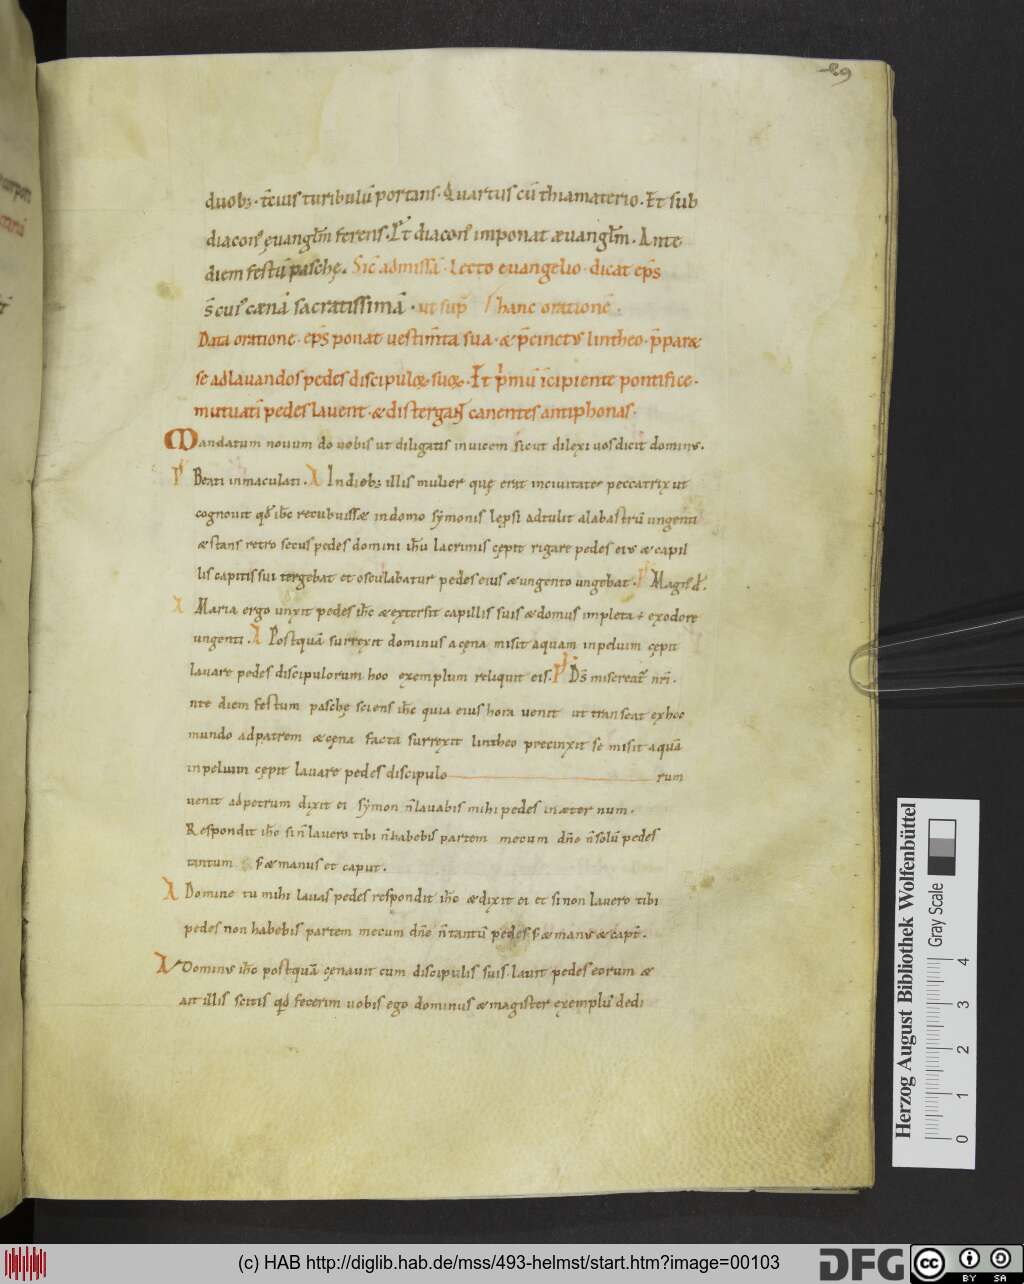 49
duob; · t̄cius turibulū portans · Quartus cū thiamaterio · Et sub
diacon᷒ ęuangl̄m ferens · Et diacon᷒ imponat æuangl̄m · Ante
diem festū paschę · Sic admissā · Lecto euangelio · dicat ep̄s
cęnā sacratissimā · ut sup̄ hanc orationē ·
Data oratione · ep̄s ponat uestim̄ta sua · & p̄cinctus lintheo · p̄par&
se ad lauandos pedes discipuloꝝ suoꝝ · Et p̄mū īcipiente pontifice ·
mutuati pedes lauent · & distergant canentes antiphonas ·
Mandatum nouum do uobis ut diligatis inuicem sicut dilexi uos dicit dominus ·
P Beati inmaculati · A In dieb; illis mulier quę erat in ciuitate peccatrix ut
cognouit qd̄ ih̄c recubuiss& in domo sẏmonis lep̄si adtulit alabastrū ungenti
& stans retro secus pedes domini ih̄u lacrimis cepit rigare pedes eius & capil
lis capitis sui tergebat et osculabatur pedes eius & ungento ungebat · P Magn᷒ d̄ ·
A Maria ergo unxit pedes ih̄c & extersit capillis suis & domus impleta ÷ ex odore
ungenti · A Postquā surrexit dominus a cena misit aquam in peluim cepit
lauare pedes discipulorum hoc exemplum reliquit eis · P D̄s misereat᷒ nr̄i ·
nte diem festum paschę sciens ih̄c quia eius hora uenit ut transeat ex hoc
mundo ad patrem & cęna facta surrexit lintheo precinxit se misit aquā
in peluim cepit lauare pedes discipulo rum
uenit ad petrum dixit ei sẏmon n̄ lauabis mihi pedes in æternum ·
Respondit ih̄c si n̄ lauero tibi n̄ habebis partem mecum dn̄e n̄ solū pedes
tantum s; & manus et caput ·
A Domine tu mihi lauas pedes respondit ih̄c & dixit ei et si non lauero tibi
pedes non habebis partem mecum dn̄e n̄ tantū pedes s; & manus & capt̄ ·
A Dominus ih̄c postquā cęnauit cum discipulis suis lauit pedes eorum &
ait illis scitis qd̄ fecerim uobis ego dominus & magister exemplū dedi
Herzog August Bibliothek Wolfenbüttel
Gray Scale
0 1 2 3 4
(c) HAB http://diglib.hab.de/mss/493-helmst/start.htm?image=00103
DFG
cc BY SA